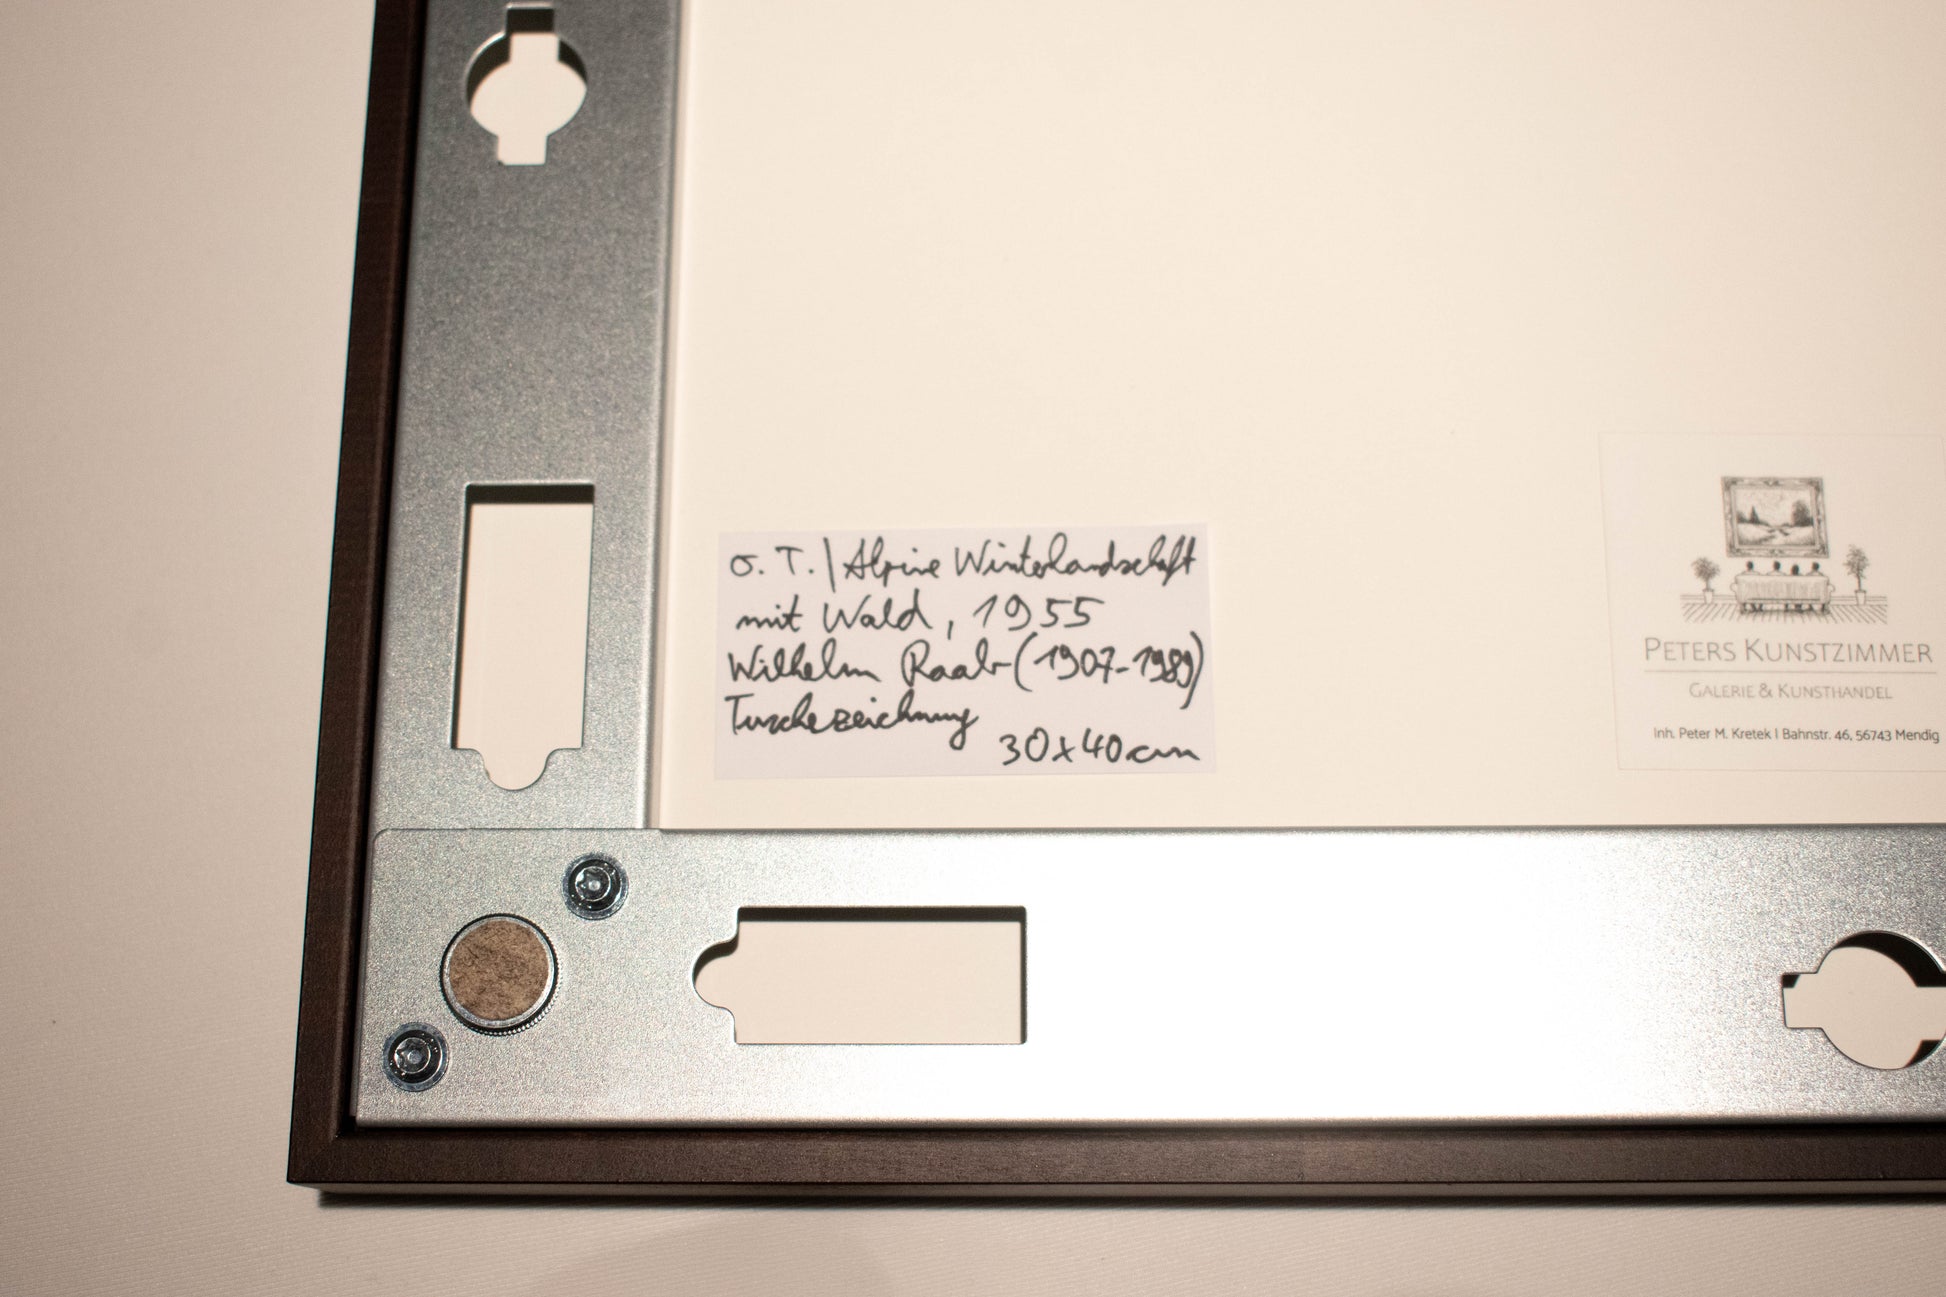 o. T. | Alpine Winterlandschaft
mit Wald, 1955
Wilhelm Raab (1907-1989)
Tuschezeichnung
30x40cm
PETERS KUNSTZIMMER
GALERIE & KUNSTHANDEL
Inh. Peter M. Kretek | Bahnstr. 46, 56743 Mendig